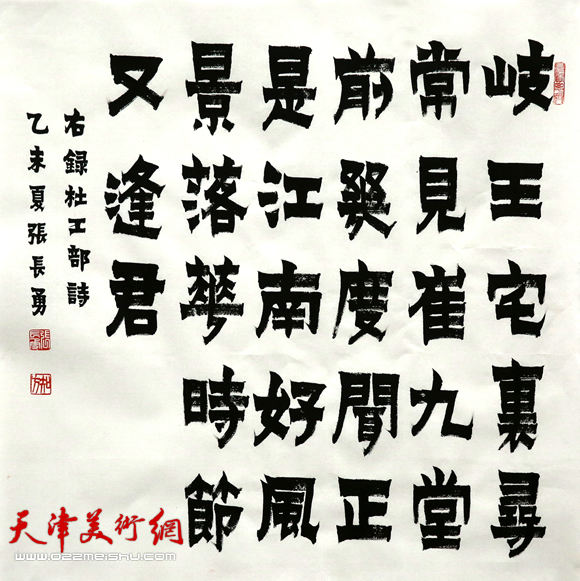 岐王宅裏尋
常見崔九堂
前幾度聞正
是江南好風
景落華時節
又逢君
右錄杜工部詩
乙未夏張長勇
天津美術網
www.022meishu.com